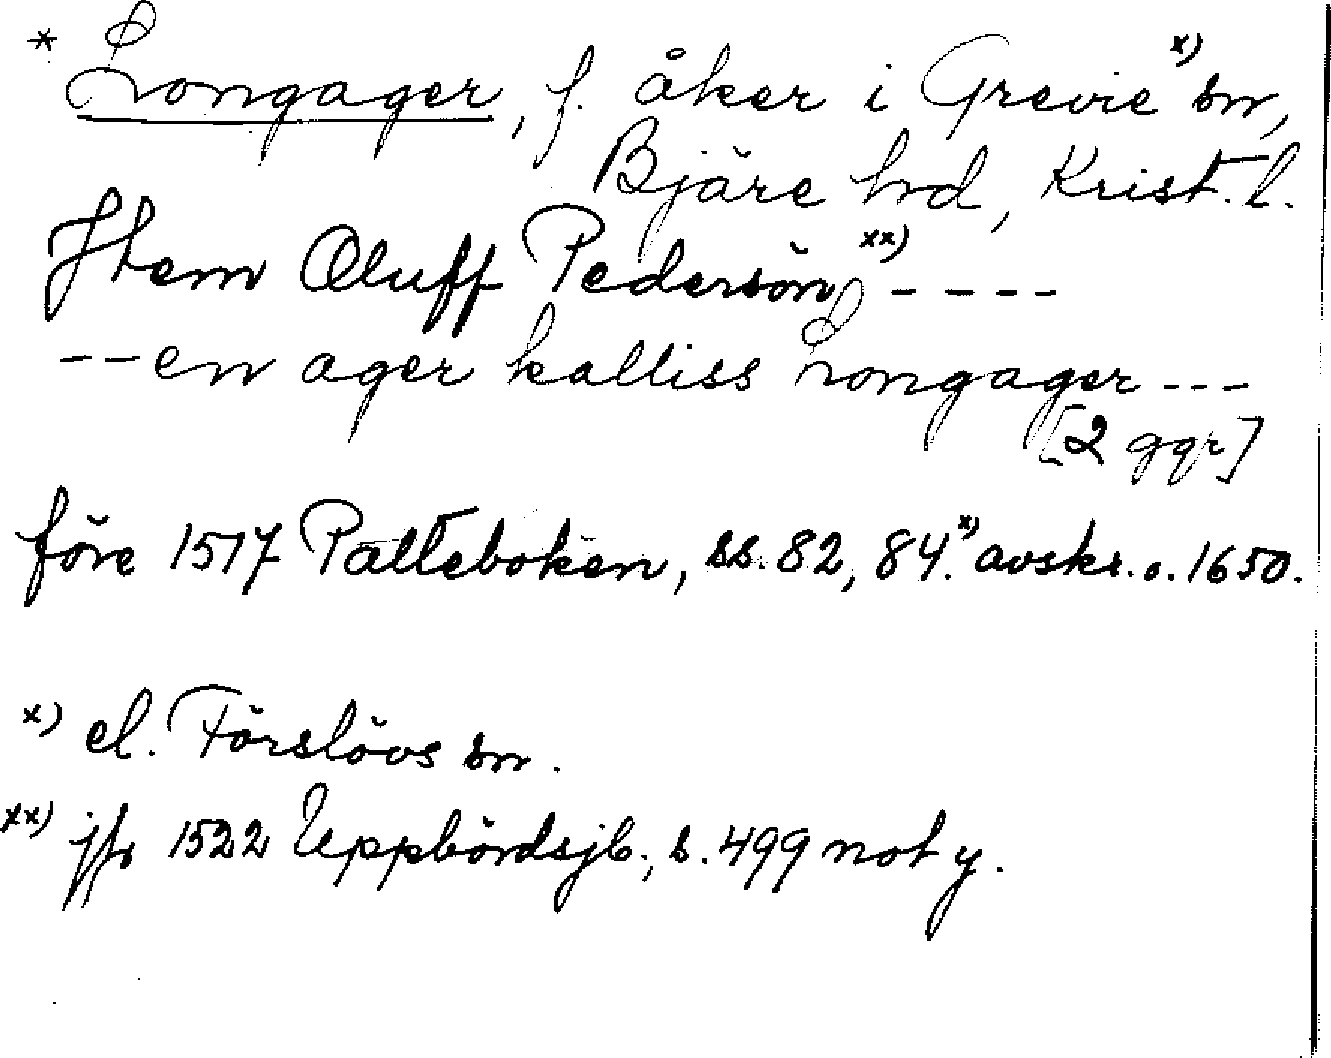 * Longager, f. åker i Grevie x) sn,
Bjäre hrd, Krist. l.
Jtem Oluff Pedersön xx) - - - -
-- en ager kalliss Longager ---
[2 ggr]
före 1517 Palteboken, ss. 82, 84. x) avskr. o. 1650.
x) el. Förslövs sn.
xx) jfr 1522 Uppbördsjb., s. 499 not y.